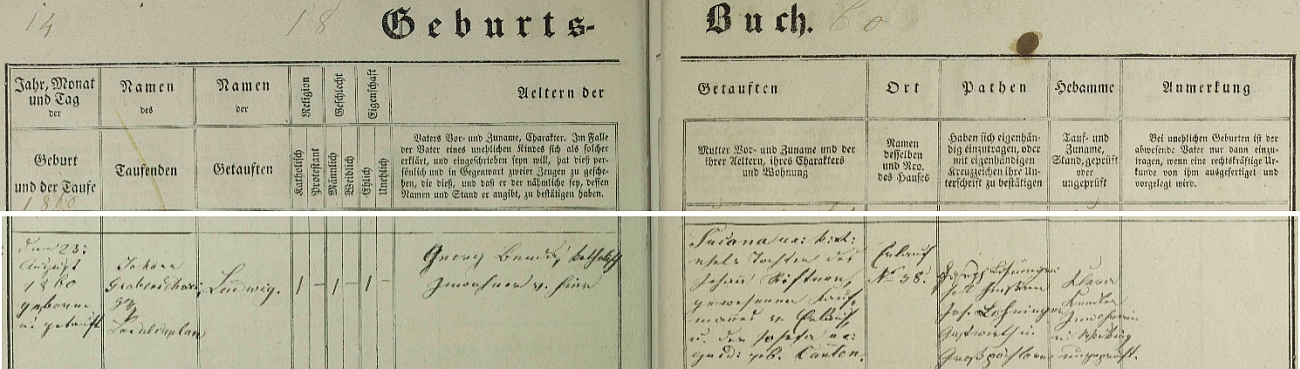 14 18 Geburts- Buch. 60
Jahr, Monat und Tag der Geburt und der Taufe
1860
Namen des Taufenden
Namen der Getauften
Religion
Katholisch
Protestant
Geschlecht
Männlich
Weiblich
Eigenschaft
Ehlich
Unehlich
Aeltern der
Vaters Vor- und Zuname, Charakter. Im Falle
der Vater eines unehlichen Kindes sich als solcher
erklärt, und eingeschrieben seyn will, hat dieß per-
sönlich und in Gegenwart zweier Zeugen zu gesche-
hen, die dieß, und daß er der nähmliche sey, dessen
Namen und Stand er angibt, zu bestätigen haben.
Getauften
Mutter Vor- und Zuname und der
ihrer Aeltern, ihres Charakters
und Wohnung
Ort
Namen
desselben
und Nro.
des Hauses
Pathen
Haben sich eigenhän-
dig einzutragen, oder
mit eigenhändigen
Kreuzzeichen ihre Un-
terschrift zu bestätigen
Hebamme
Tauf- und
Zuname,
Stand, geprüft
oder
ungeprüft
Anmerkung
Bei unehlichen Geburten ist der
abwesende Vater nur dann einzu-
tragen, wenn eine rechtskräftige Ur-
kunde von ihm ausgefertiget und
vorgelegt wird.
den 23:
August
1860
geboren
u: getauft
Johann
Localkaplan
Ludwig.
1 – 1 – 1 –
Georg
Inwohner v. hier
Tochter des
Johann
gewesenen Kauf-
mannes v. Erlauf,
u. der Josefa
geb. Canton.
Erlauf
No 38.
Joseph
Jos. Lohninger
Gastwirth in
Großpöchlarn
Klara
Inwohnerin
ungeprüft.